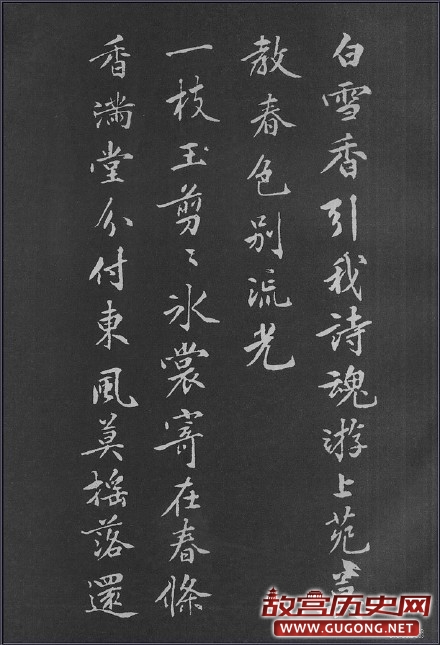 白雪香引我詩魂游上苑
教春色别流光
一枝玉剪〻氷裳寄在春條
香滿堂分付東風莫搖落還
故宫历史网
WWW.GUGONG.NET